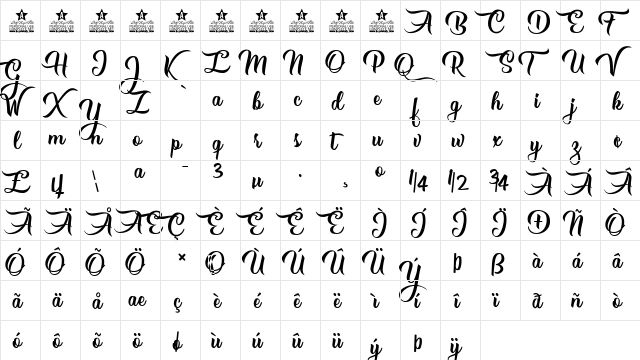 A B C D E F
G H I J K L M N O P Q R S T U V
W X Y Z ` a b c d e f g h i j k
l m n o p q r s t u v w x y z
£ ¥ ¦ ª ¯ 3 µ · ¸ º 1/4 1/2 3/4 À Á Â
Ã Ä Å Æ Ç È É Ê Ë Ì Í Î Ï Ð Ñ Ò
Ó Ô Õ Ö × Ø Ù Ú Û Ü Ý Þ ß à á â
ã ä å æ ç è é ê ë ì í î ï ð ñ ò
ó ô õ ö ø ù ú û ü ý þ ÿ